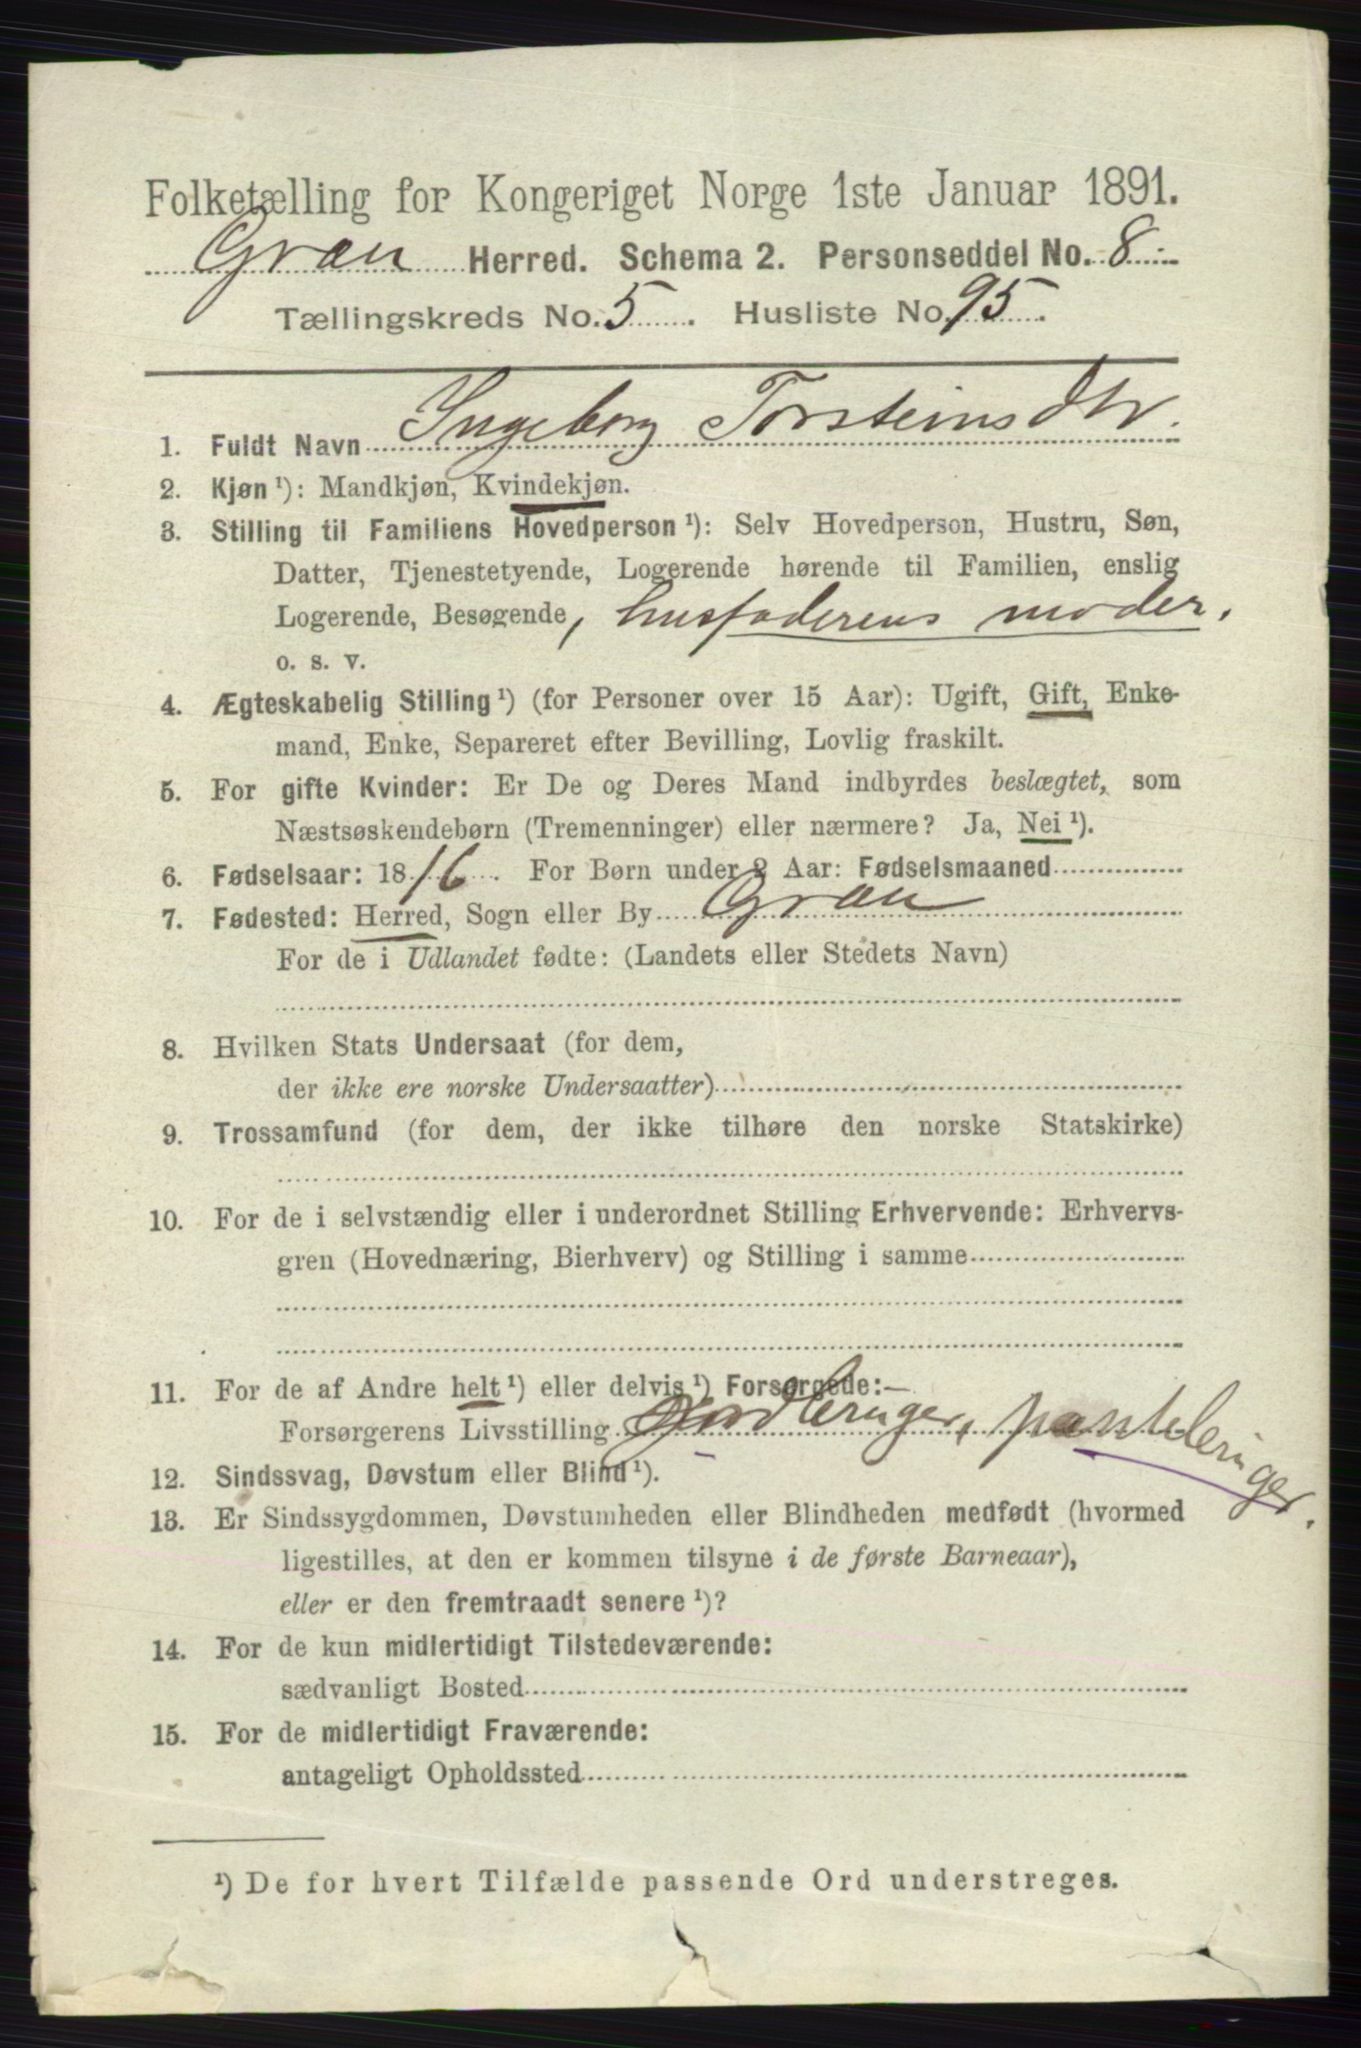 Folketælling for Kongeriget Norge 1ste Januar 1891.
Gran Herred. Schema 2. Personseddel No. 8
Tællingskreds No. 5. Husliste No. 95.
1. Fuldt Navn Ingeborg Torsteinsdtr.
2. Kjøn ¹): Mandkjøn, Kvindekjøn.
3. Stilling til Familiens Hovedperson ¹): Selv Hovedperson, Hustru, Søn,
Datter, Tjenestetyende, Logerende hørende til Familien, enslig
Logerende, Besøgende, husfaderens moder.
o. s. v.
4. Ægteskabelig Stilling ¹) (for Personer over 15 Aar): Ugift, Gift, Enke-
mand, Enke, Separeret efter Bevilling, Lovlig fraskilt.
5. For gifte Kvinder: Er De og Deres Mand indbyrdes beslægtet, som
Næstsøskendebørn (Tremenninger) eller nærmere? Ja, Nei ¹).
6. Fødselsaar: 1816. For Børn under 2 Aar: Fødselsmaaned
7. Fødested: Herred, Sogn eller By Gran
For de i Udlandet fødte: (Landets eller Stedets Navn)
8. Hvilken Stats Undersaat (for dem,
der ikke ere norske Undersaatter)
9. Trossamfund (for dem, der ikke tilhøre den norske Statskirke)
10. For de i selvstændig eller i underordnet Stilling Erhvervende: Erhvervs-
gren (Hovednæring, Bierhverv) og Stilling i samme
11. For de af Andre helt ¹) eller delvis ¹) Forsørgede:
Forsørgerens Livsstilling
12. Sindssvag, Døvstum eller Blind ¹).
13. Er Sindssygdommen, Døvstumheden eller Blindheden medfødt (hvormed
ligestilles, at den er kommen tilsyne i de første Barneaar),
eller er den fremtraadt senere ¹)?
14. For de kun midlertidigt Tilstedeværende:
sædvanligt Bosted
15. For de midlertidigt Fraværende:
antageligt Opholdssted
¹) De for hvert Tilfælde passende Ord understreges.